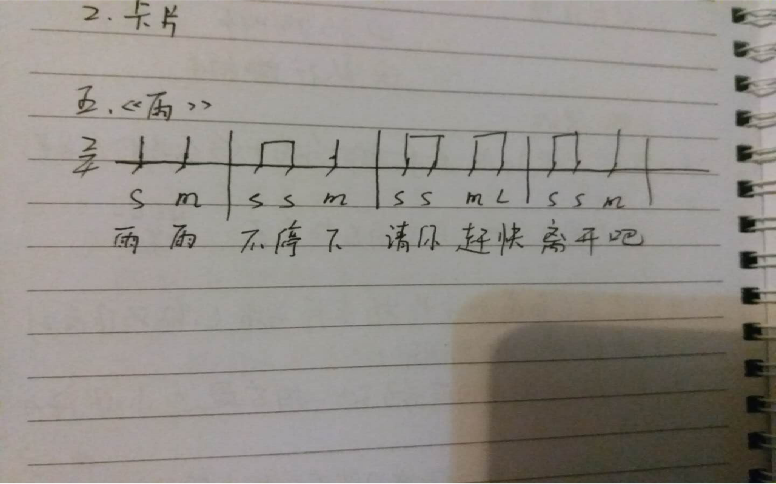 2. 卡片
五.《雨》
2/4
S m | s s m | s s m L | s s m |
雨 雨 不停下 请你 赶快 离开吧